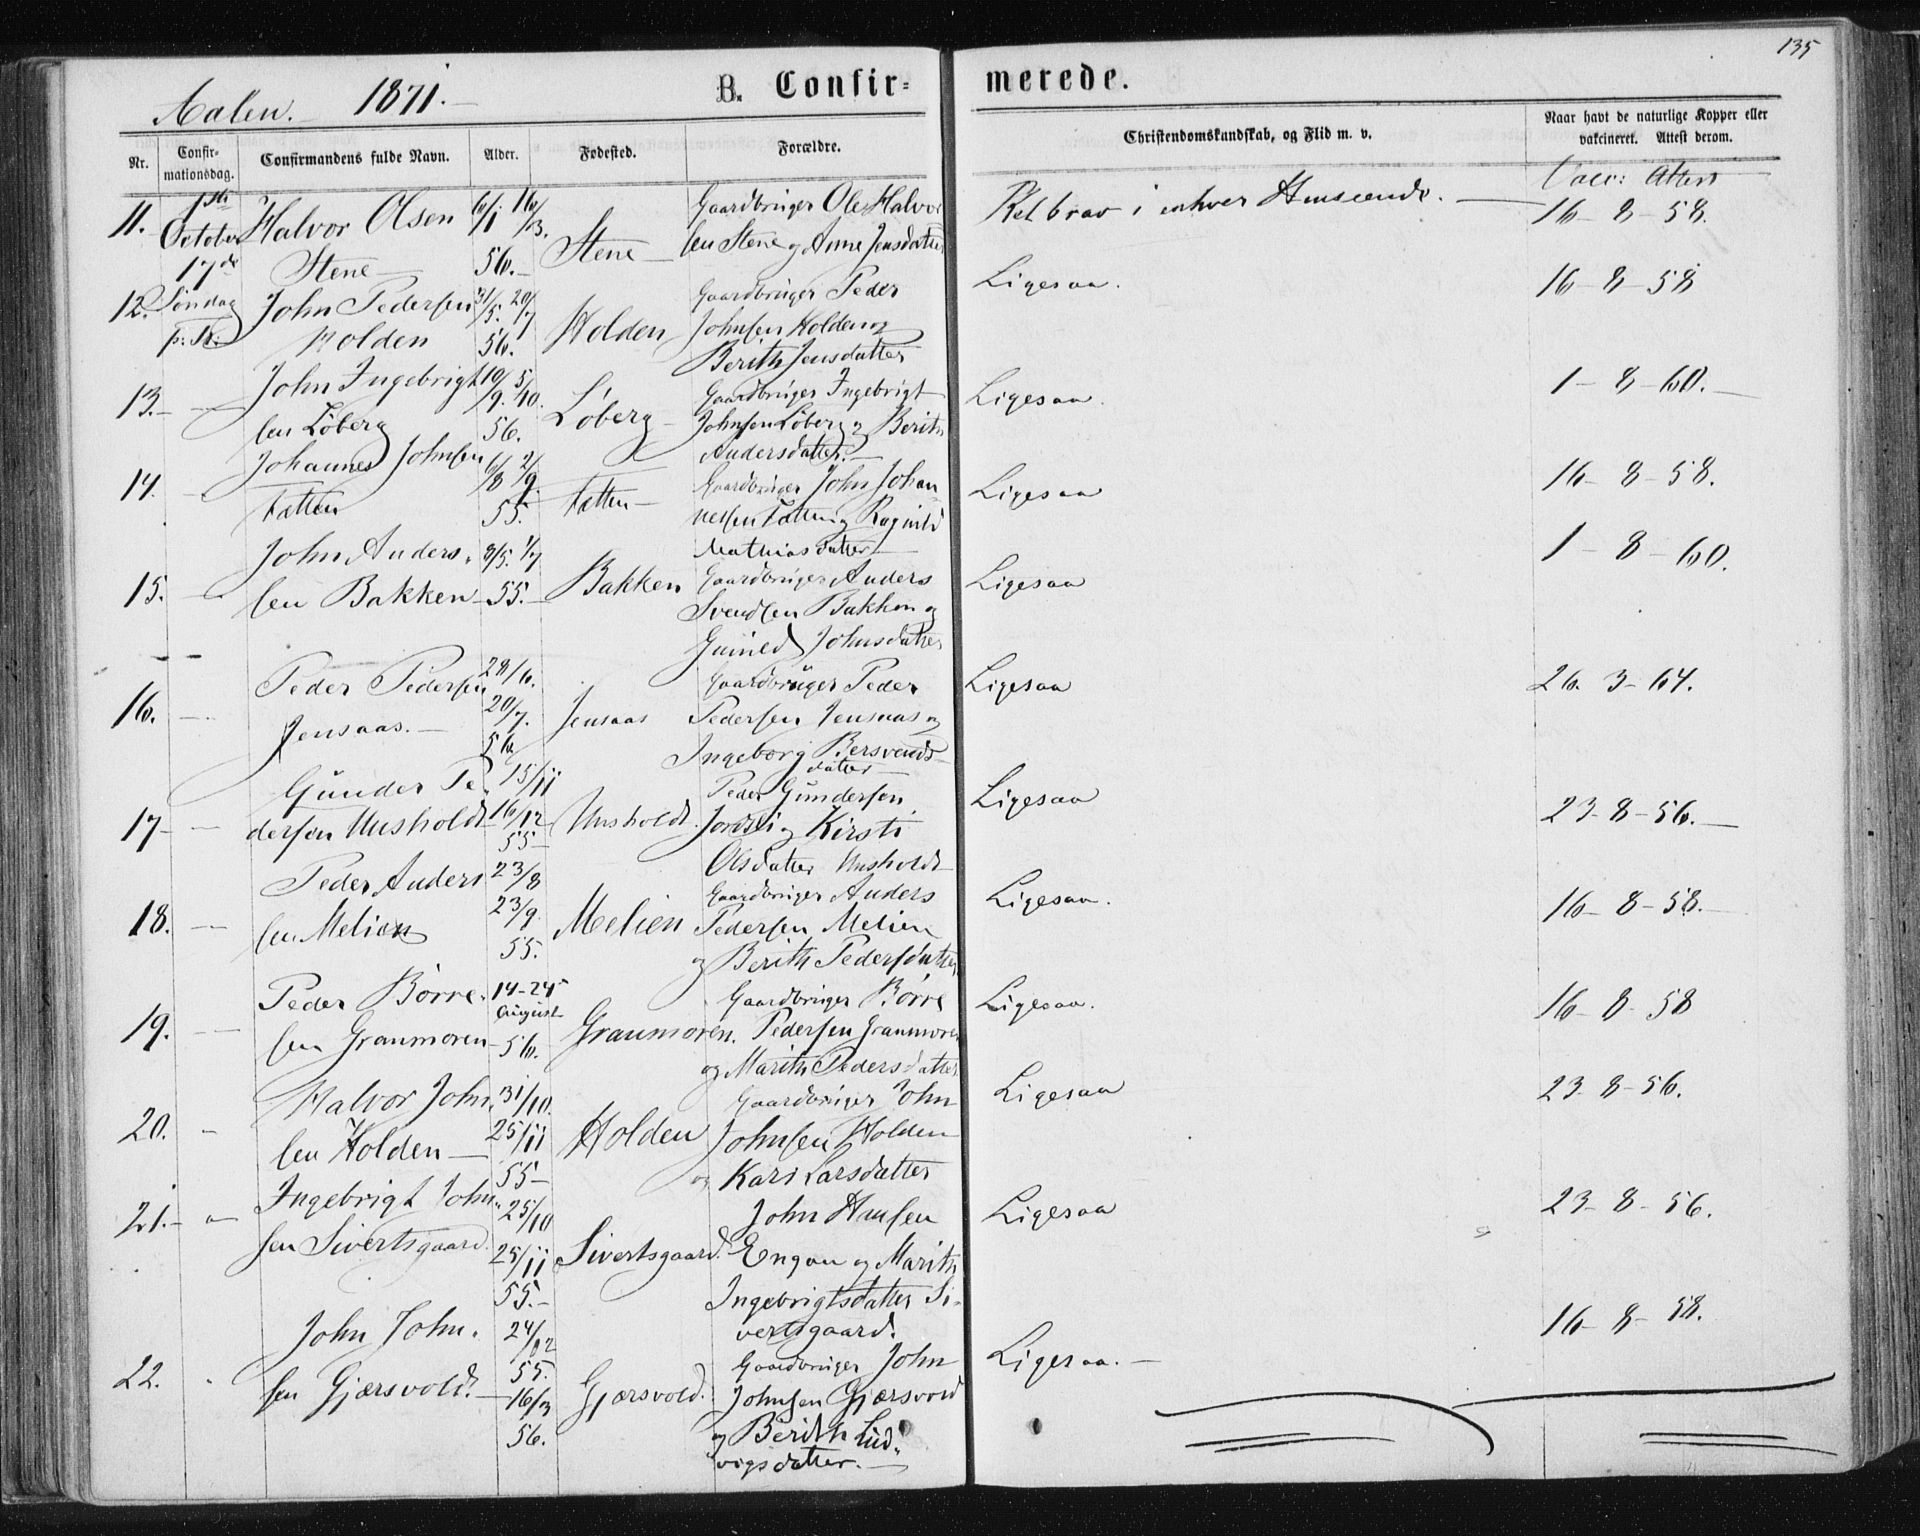 135
Aalen. 1871.
B. Confir=
merede.
Nr.
Confir-
mationsdag.
Confirmandens fulde Navn.
Alder.
Fødested.
Forældre.
Christendomskundskab, og Flid m. v.
Naar havt de naturlige Kopper eller
vakcineret. Attest derom.
Vacc: Attest
11. 1ste
October
17de
Søndag
p: Tr.
Halvor Olsen
Stene
6/1 16/3.
56.
Stene
Gaardbruger Ole Halvor
sen Stene og Anne Jensdatter
Ret brav i enhver Henseende.
16-8-58.
12.
John Pedersen
Holden
31/5. 20/7
56.
Holden
Gaardbruger Peder
Johnsen Holden og
Berith Jensdatter
Ligesaa.
16-8-58
13.
John Ingebrigt
sen Løberg
19/9. 5/10.
56.
Løberg
Gaardbruger Ingebrigt
Johnsen Løberg og Berith
Andersdatter.
Ligesaa.
1-8-60.
14.
Johannes Johnsen
Tatten
6/8 2/9.
55.
Tatten
Gaardbruger John Johan-
nessen Tatten og Ragnild
Mathiasdatter
Ligesaa
16-8-58.
15.
John Anders-
sen Bakken
8/5. 1/7
55.
Bakken
Gaardbruger Anders
Svendsen Bakken og
Gunild Johnsdatter
Ligesaa
1-8-60.
16.
Peder Pedersen
Jensaas.
28/6.
20/7.
56
Jensaas
Gaardbruger Peder
Pedersen Jensaas og
Ingeborg Bersvends-
datter
Ligesaa
26. 3-64.
17
Gunder Pe-
dersen Unsholdt
15/11
16/12
55
Unsholdt.
Peder Gundersen
Jordsli og Kirsti
Olsdatter Unsholdt
Ligesaa
23-8-56.
18.
Peder Anders
sen Melien
23/8
23/9.
55.
Melien
Gaardbruger Anders
Pedersen Melien
og Berith Pedersdatter
Ligesaa.
16-8-58.
19.
Peder Børre-
sen Granmoren
14-24
August
56.
Granmoren.
Gaardbruger Børre
Pedersen Granmoren
og Marith Pedersdatter
Ligesaa.
16-8-58
20.
Halvor John-
sen Holden
31/10.
25/11
55
Holden
Gaardbruger John
Johnsen Holden
og Kari Larsdatter
Ligesaa
23-8-56.
21.
Ingebrigt John-
sen Sivertsgaard.
25/10
25/11
55.
Sivertsgaard.
John Hansen
Engan og Marith
Ingebrigtsdatter Si-
vertsgaard.
Ligesaa
23-8-56.
22.
John John-
sen Gjærsvold.
24/12
55.
16/3
56.
Gjærsvold.
Gaardbruger John
Johnsen Gjærsvold
og Berith Lud-
vigsdatter.
Ligesaa.
16-8-58.